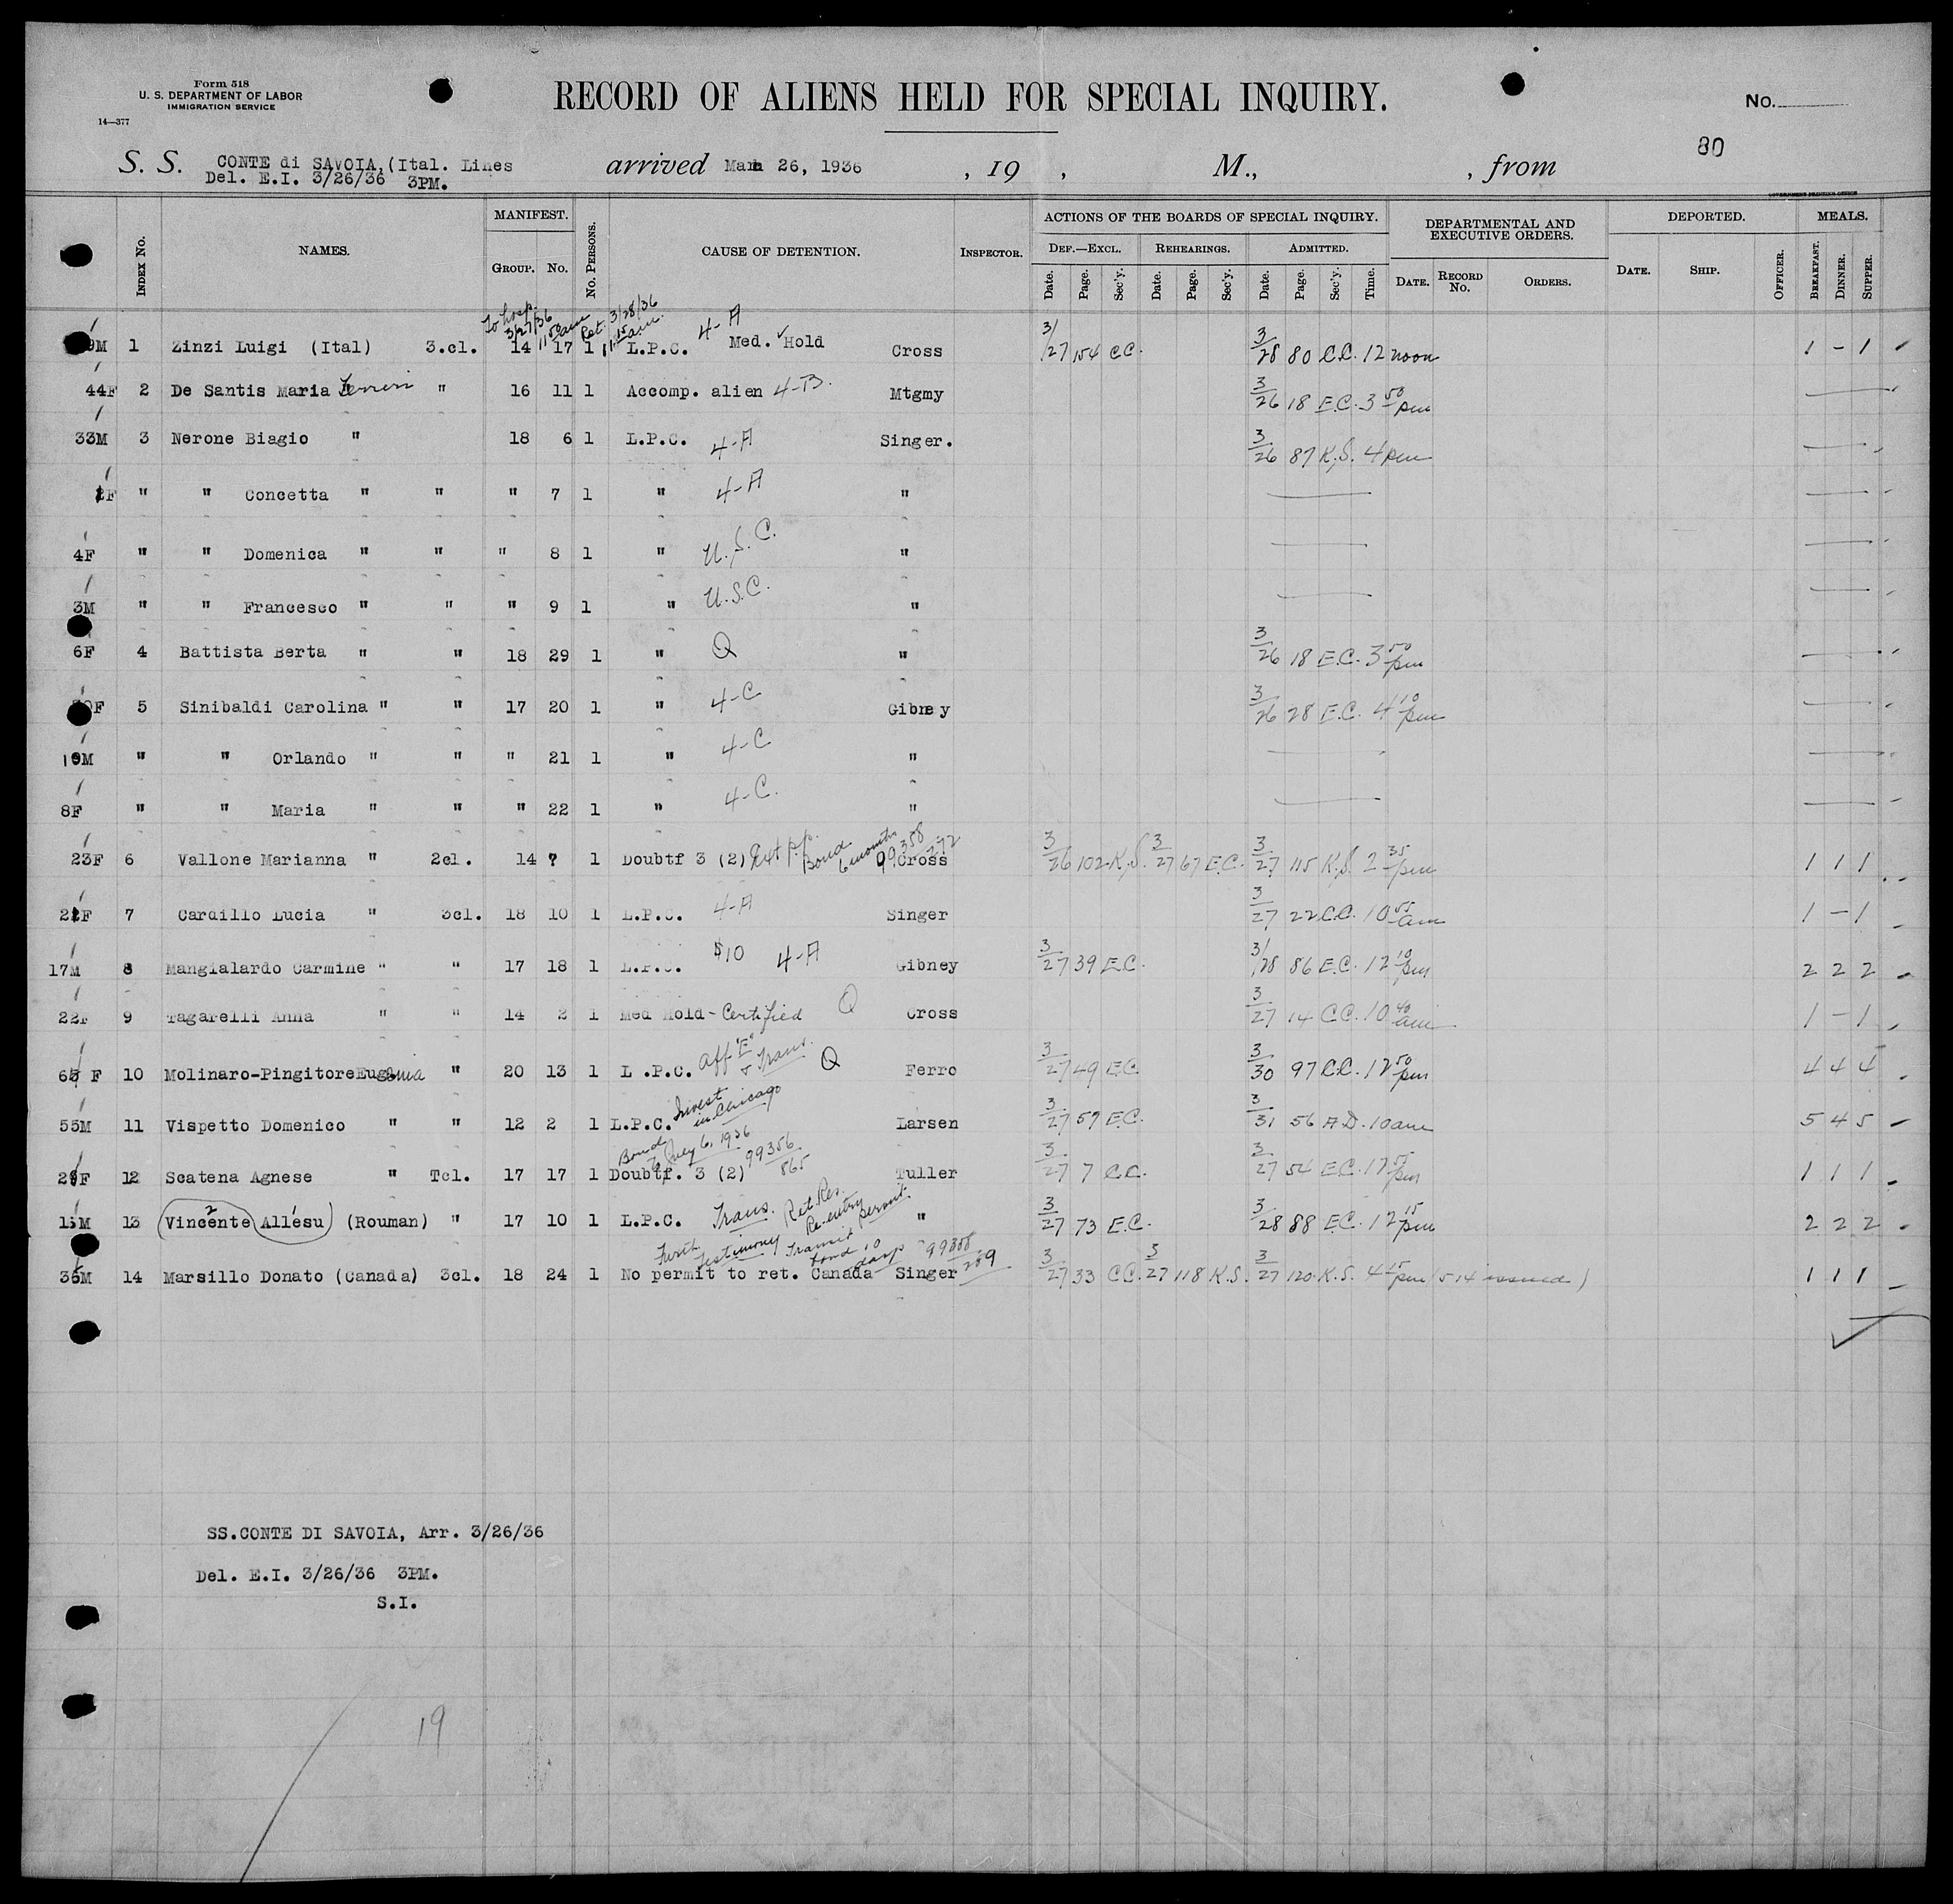 Form 518
U. S. DEPARTMENT OF LABOR
IMMIGRATION SERVICE
14—377
RECORD OF ALIENS HELD FOR SPECIAL INQUIRY.
No.
80
S. S. CONTE di SAVOIA,(Ital. Lines arrived Mar 26, 1936 , 19 , M., , from
Del. E.I. 3/26/36 3PM.
GOVERNMENT PRINTING OFFICE
INDEX No. NAMES. MANIFEST. GROUP. No. No. PERSONS. CAUSE OF DETENTION. INSPECTOR. ACTIONS OF THE BOARDS OF SPECIAL INQUIRY. DEPARTMENTAL AND EXECUTIVE ORDERS. DEPORTED. MEALS.
DEF.—EXCL. REHEARINGS. ADMITTED.
Date. Page. Sec'y. Date. Page. Sec'y. Date. Page. Sec'y. Time. DATE. RECORD No. ORDERS. DATE. SHIP. OFFICER. BREAKFAST. DINNER. SUPPER.
To hosp. 3/27/36 11 50 am Ret. 3/28/36 11 15 am.
9M 1 Zinzi Luigi (Ital) 3.cl. 14 17 1 L.P.C. 4-A Med. Hold Cross 3/27 154 C.C. 3/28 80 C.C. 12 noon 1 - 1
44F 2 De Santis Maria " 16 11 1 Accomp. alien 4-B. Mtgmy 3/26 18 E.C. 3 50 pm
33M 3 Nerone Biagio " 18 6 1 L.P.C. 4-A Singer. 3/26 87 K.S. 4 pm
F " " Concetta " " " 7 1 " 4-A "
4F " " Domenica " " " 8 1 " U.S.C. "
3M " " Francesco " " " 9 1 " U.S.C. "
6F 4 Battista Berta " " 18 29 1 " Q " 3/26 18 E.C. 3 50 pm
F 5 Sinibaldi Carolina " " 17 20 1 " 4-C Gibney 3/26 28 E.C. 4 10 pm
10M " " Orlando " " " 21 1 " 4-C "
8F " " Maria " " " 22 1 " 4-C. "
23F 6 Vallone Marianna " 2cl. 14 ? 1 Doubtf 3 (2) Ext p.p. Bond 6 months 99358/272 Cross 3/26 102 K.S. 3/27 67 E.C. 3/27 115 K.S. 2 35 pm 1 1 1
2F 7 Cardillo Lucia " 3cl. 18 10 1 L.P.C. 4-A Singer 3/27 22 C.C. 10 55 am 1 - 1
17M 8 Mangialardo Carmine " " 17 18 1 L.P.C. $10 4-A Gibney 3/27 39 E.C. 3/28 86 E.C. 12 10 pm 2 2 2
22F 9 Tagarelli Anna " " 14 2 1 Med Hold - Certified Q Cross 3/27 14 C.C. 10 40 am 1 - 1
6 F 10 Molinaro-Pingitore Eugenia " 20 13 1 L.P.C. Aff "E" & Trans. Q Ferro 3/27 49 E.C. 3/30 97 C.C. 12 50 pm 4 4 4
55M 11 Vispetto Domenico " " 12 2 1 L.P.C. Invest in Chicago Larsen 3/27 57 E.C. 3/31 56 A.D. 10 am 5 4 5
Bond to July 6, 1936 99356/865
2F 12 Scatena Agnese " Tcl. 17 17 1 Doubtf. 3 (2) Tuller 3/27 7 C.C. 3/27 54 E.C. 12 55 pm 1 1 1
1M 13 Vincente Allesu (Rouman) " 17 10 1 L.P.C. Trans. Ret. Res. Re-entry permit. " 3/27 73 E.C. 3/28 88 E.C. 12 15 pm 2 2 2
Furth testimony Transit bond 10 days 99358/289
3M 14 Marsillo Donato (Canada) 3cl. 18 24 1 No permit to ret. Canada Singer 3/27 33 C.C. 3/27 118 K.S. 3/27 120 K.S. 4 45 pm (514 issued) 1 1 1
SS.CONTE DI SAVOIA, Arr. 3/26/36
Del. E.I. 3/26/36 3PM.
S.I.
19